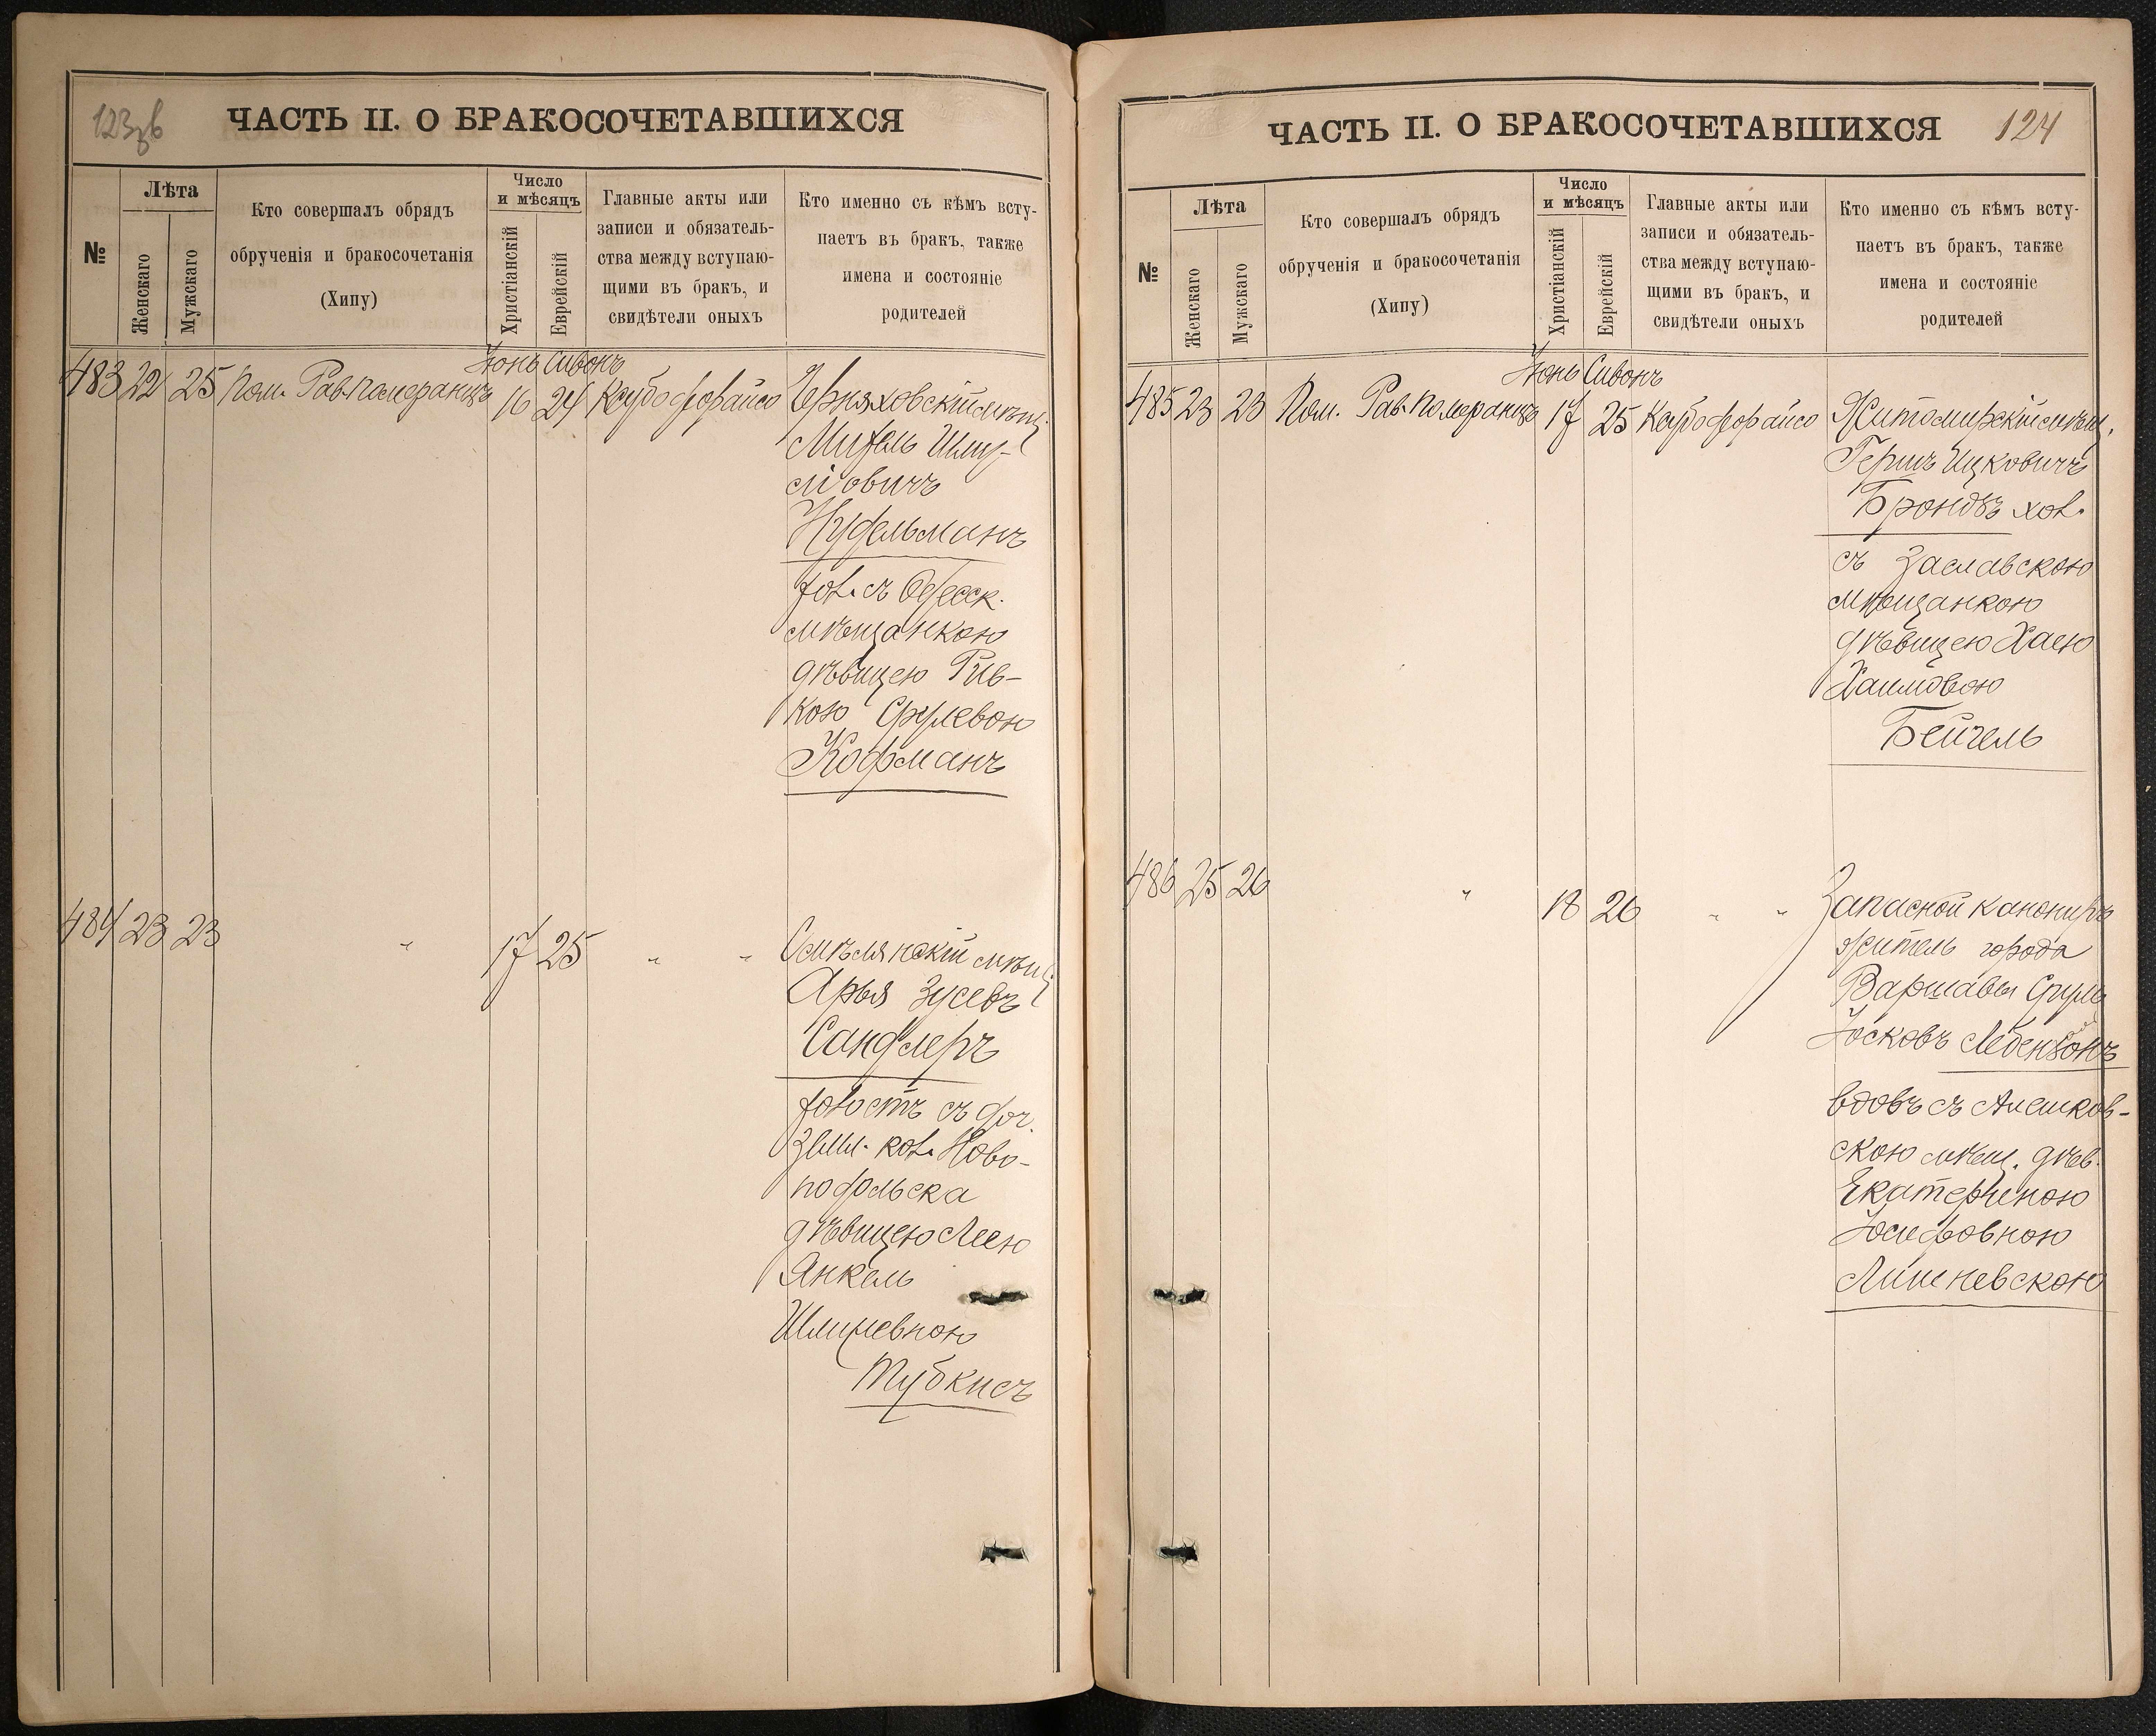 123об
ЧАСТЬ II. О БРАКОСОЧЕТАВШИХСЯ
№
Лѣта
Женскаго
Мужскаго
Кто совершалъ обрядъ
обрученія и бракосочетанія
(Хипу)
Число
и мѣсяцъ
Христіанскій
Еврейскій
Главные акты или
записи и обязатель-
ства между вступаю-
щими въ бракъ, и
свидѣтели оныхъ
Кто именно съ кѣмъ всту-
паетъ въ бракъ, также
имена и состояніе
родителей
Іюнь Сивонъ
483 22 25 Пом. Рав. Померанцъ 16 24 Ксубо фрайсо Черняховскій мѣщ.
Михель Шму-
ліовичъ
Нудельманъ
хол. съ Одесск.
мѣщанкою
дѣвицею Рив-
кою Срулевою
Кофманъ
484 23 23 " 17 25 " " Смѣлянскій мѣщ.
Арья Зусевъ
Сандлеръ
холостъ съ доч.
земл. кол. Ново-
подольска
дѣвицею Леею
Янкель
Шлимевною
Тубкисъ
ЧАСТЬ II. О БРАКОСОЧЕТАВШИХСЯ
124
№
Лѣта
Женскаго
Мужскаго
Кто совершалъ обрядъ
обрученія и бракосочетанія
(Хипу)
Число
и мѣсяцъ
Христіанскій
Еврейскій
Главные акты или
записи и обязатель-
ства между вступаю-
щими въ бракъ, и
свидѣтели оныхъ
Кто именно съ кѣмъ всту-
паетъ въ бракъ, также
имена и состояніе
родителей
Іюнь Сивонъ
485 23 23 Пом. Рав. Померанцъ 17 25 Ксубо фрайсо Житомирскій мѣщ.
Гершъ Ицковичъ
Брондзъ хол.
съ Заславскою
мѣщанкою
дѣвицею Хаею
Хаимовою
Бейчель
486 25 26 " 18 26 " " Запасной канониръ
житель города
Варшавы Сруль
Іосковъ Лебензонъ
вдовъ съ Алешков-
скою мѣщ. дѣв.
Екатериною
Іосифовною
Лишневскою